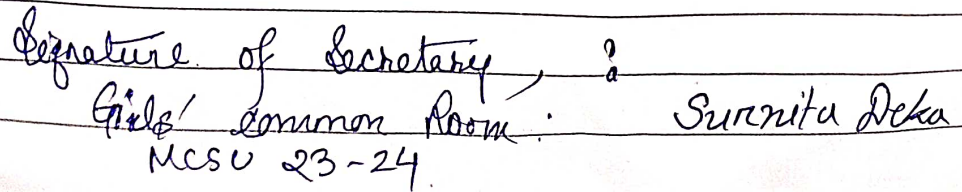 Signature of Secretary, :
Girls' common Room : Sunnita Deka
MCSU 23-24